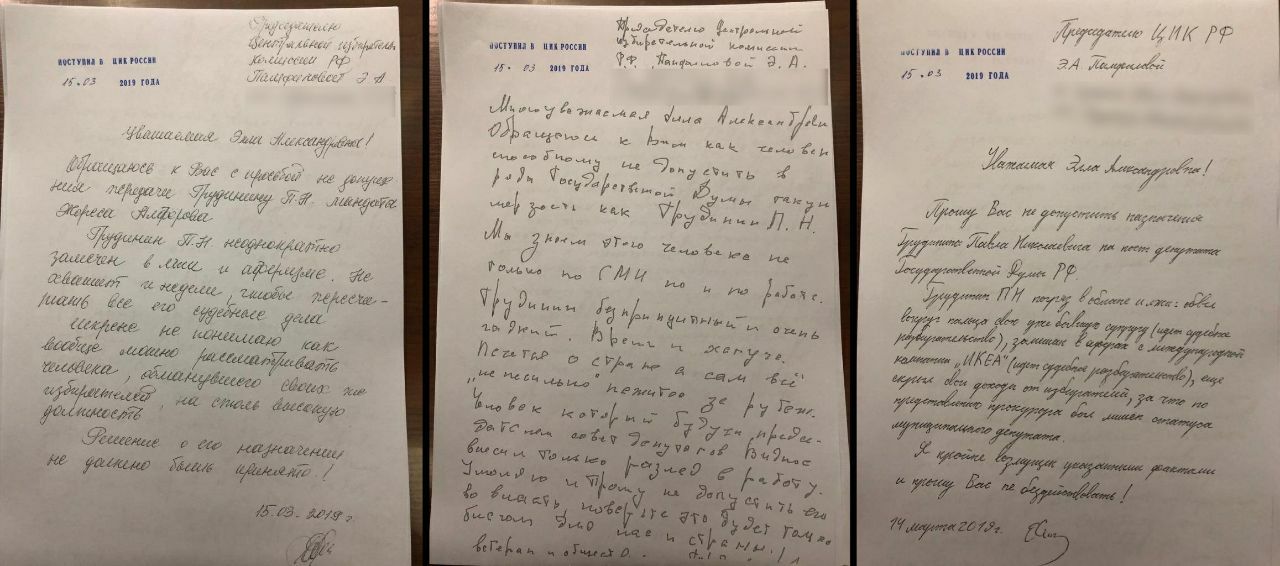 Председателю
Центральной избиратель
комиссии РФ
Памфиловой Э А
ПОСТУПИЛ В ЦИК РОССИИ
15.03 2019 ГОДА
Уважаемая Элла Александровна!
Обращаюсь к Вас с просьбой не допуще
ния передачи Грудинину П.Н. мандата
Жореса Алферова
Грудинин П.Н. неоднократно
замечен в лжи и аферизме. Не
хватит и недели, чтобы пересчи-
тать все его судебные дела
Искрене не понимаю как
вообще можно рассматривать
человека, обманувшего своих же
избирателей, на столь высокую
должность
Решение о его назначении
не должно быть принято!
15.03-2019 г.
Центральной
избирательной комиссии
Р.Ф. Памфиловой Э. А.
ПОСТУПИЛ В ЦИК РОССИИ
15.03 2019 ГОДА
Многоуважаемая Элла Александровн
Обращаюсь к Вам как человек
способному не допустить в
ряды Государственной Думы такую
мерзость как Грудинин П. Н.
Мы знаем этого человека не
только по СМИ но и по работе.
Грудинин и очень
гадкий. Врун и хапуга.
о стране а сам всё
за рубеж.
Человек который будучи предсе-
совет депутатов Видное
вносил только разлад в работу.
Умоляю и Прошу не допустить его
во власть, поверьте это будет только
для нас и страны!
ветеран и
Председателю ЦИК РФ
Э.А. Памфиловой
ПОСТУПИЛ В ЦИК РОССИИ
15.03 2019 ГОДА
Уважаемая Элла Александровна!
Прошу Вас не допустить назначения
Грудинина Павла Николаевича на пост депутата
Государственной Думы РФ.
Грудинин ПН погряз в обмане и лжи: обвел
вокруг пальца свою уже бывшую супругу (идет судебное
разбирательство), замешан в аферах с международной
компании "ИКЕА" (идет судебное разбирательство), еще
скрыл свои доходы от избирателей, за что по
представлению прокурора был лишен статуса
муниципального депутата.
Я крайне возмущен указанными фактами
и прошу Вас не бездействовать!
14 марта 2019 г.